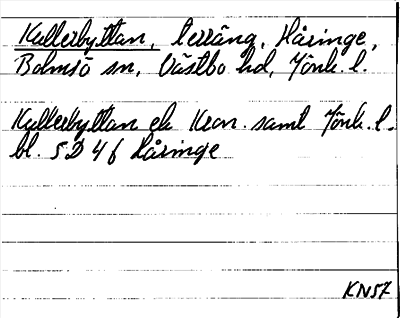 Kullerbyttan, terräng, Håringe,
Bolmsö sn, Västbo hd, Jönk. l.
Kullerbyttan ek Kron. saml Jönk. l.
bl. 5D 4 f Håringe
KN57